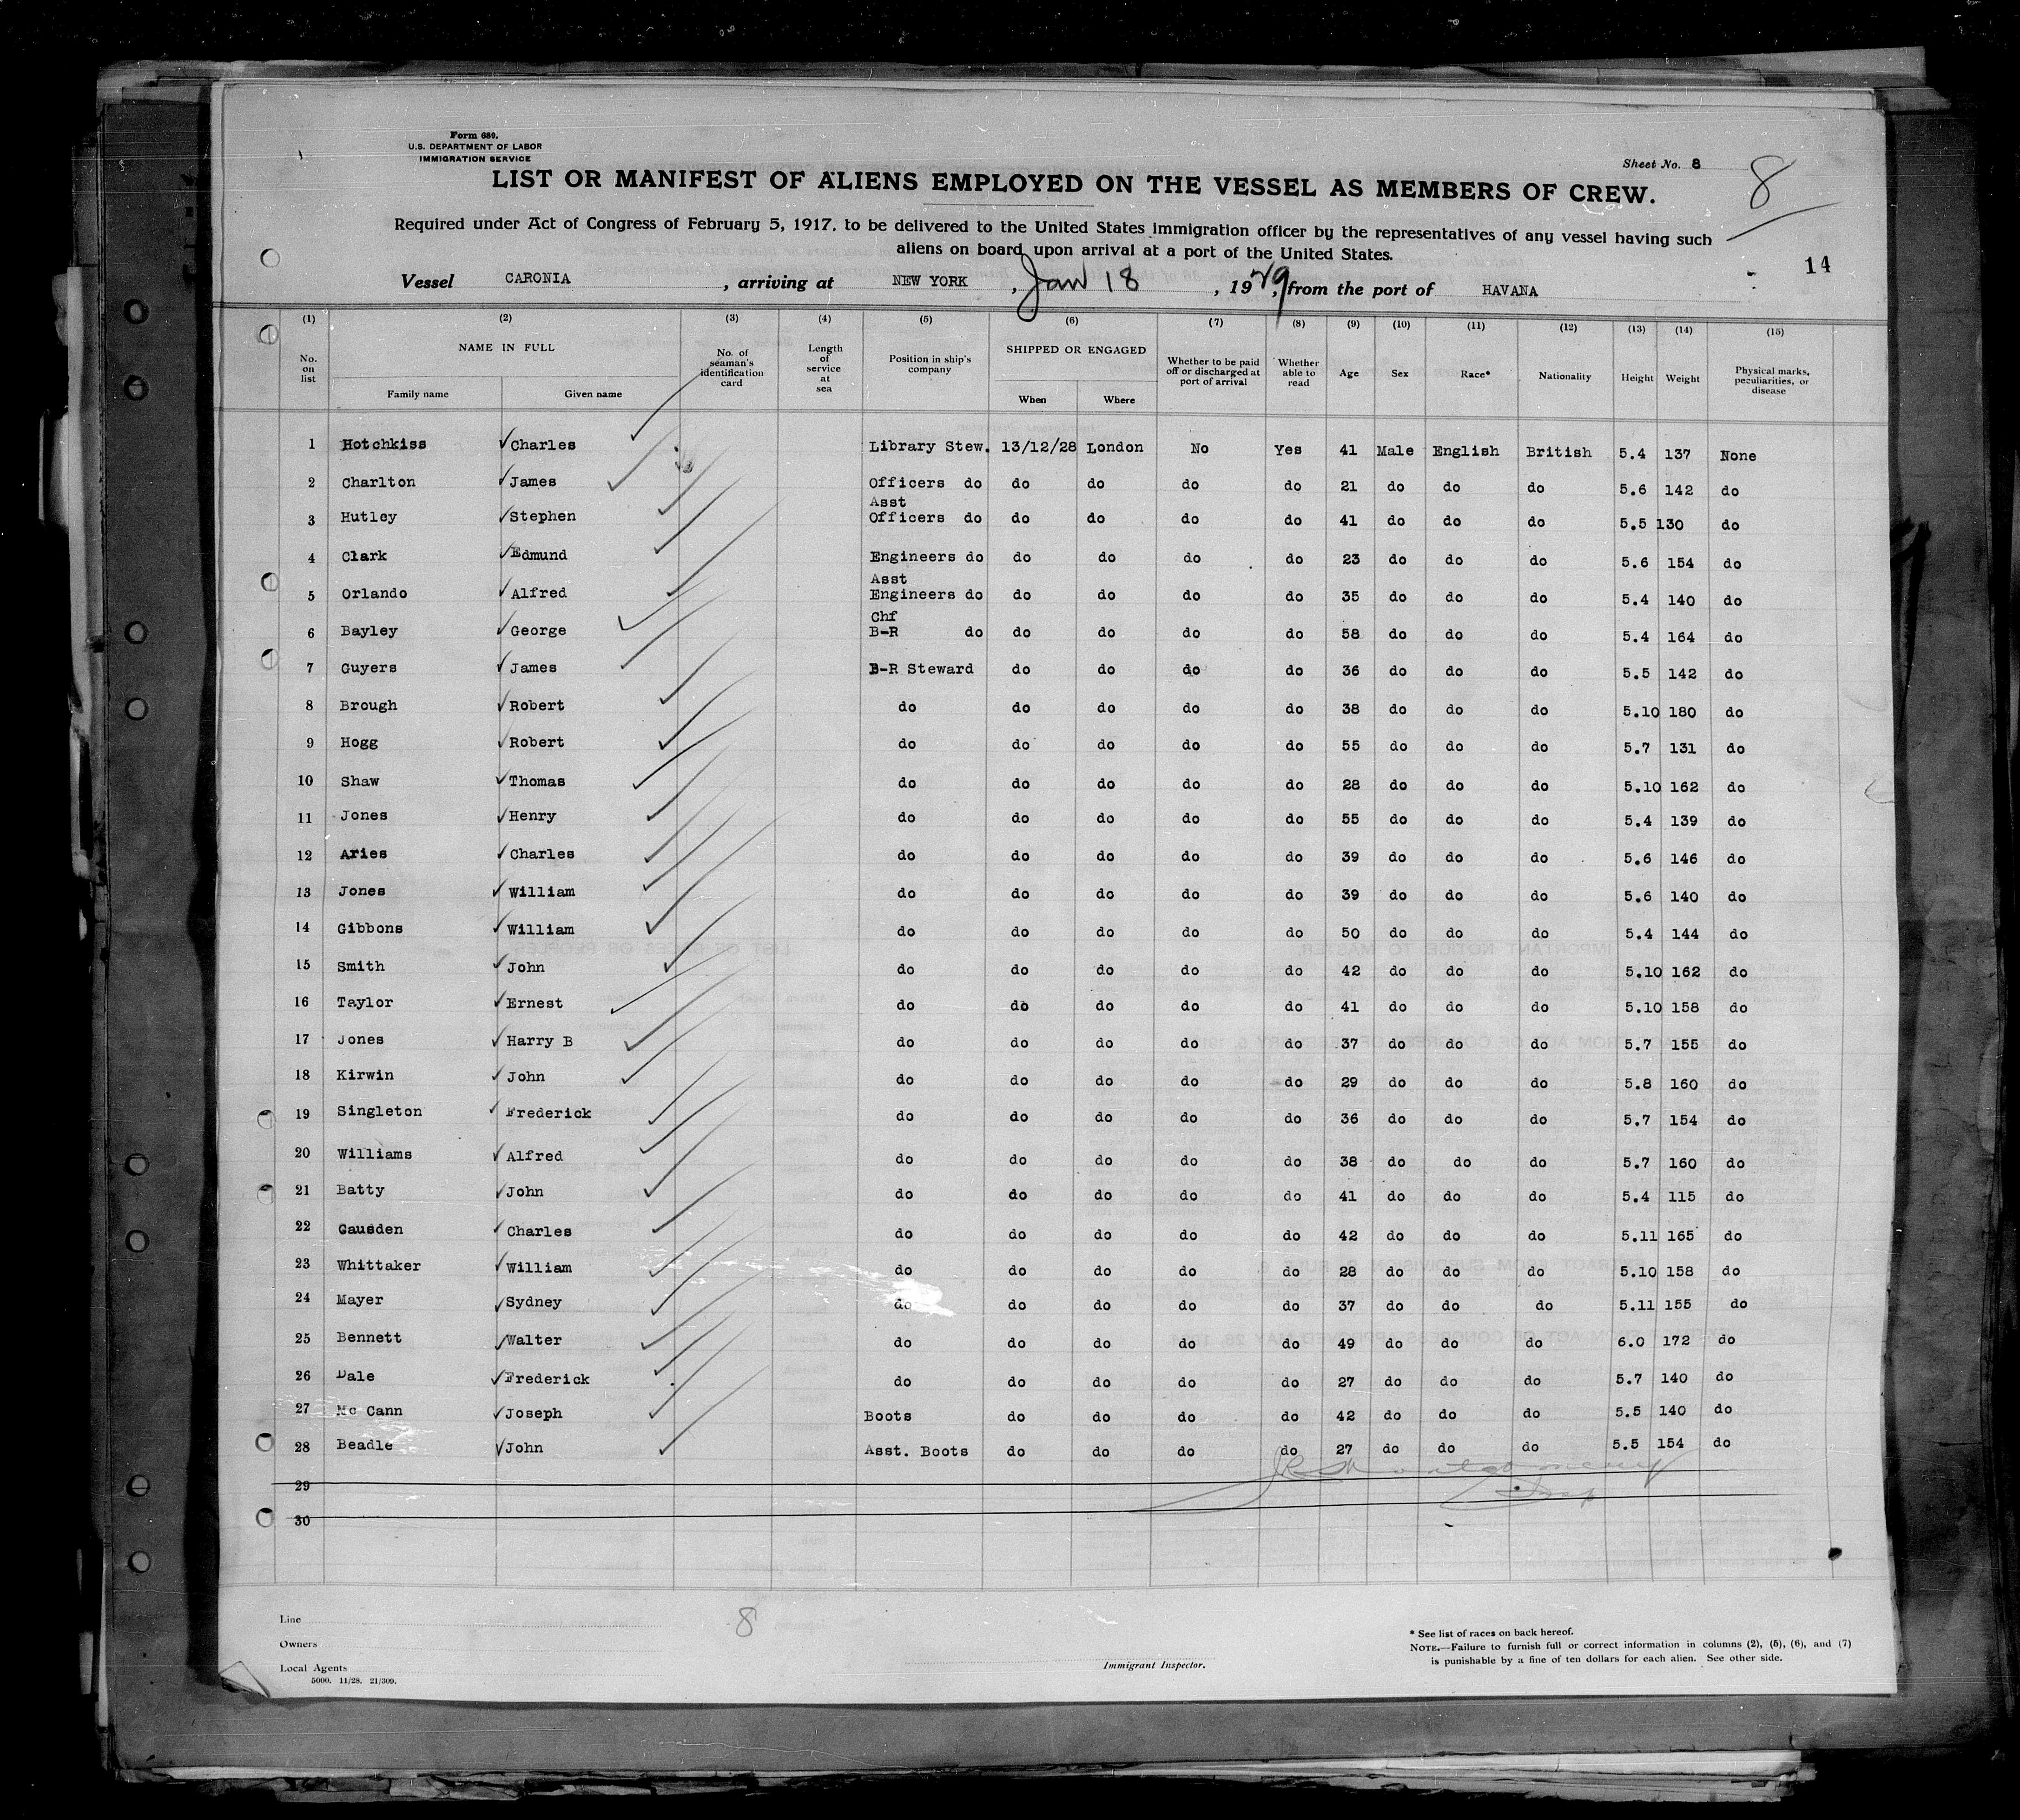 Form 689.
U.S. DEPARTMENT OF LABOR
IMMIGRATION SERVICE
Sheet No. 8
8
LIST OR MANIFEST OF ALIENS EMPLOYED ON THE VESSEL AS MEMBERS OF CREW.
Required under Act of Congress of February 5, 1917, to be delivered to the United States immigration officer by the representatives of any vessel having such
aliens on board upon arrival at a port of the United States.
14
Vessel CARONIA , arriving at NEW YORK , Jan 18 , 1929, from the port of HAVANA
(1) (2) (3) (4) (5) (6) (7) (8) (9) (10) (11) (12) (13) (14) (15)
No. on list NAME IN FULL Family name Given name No. of seaman's identification card Length of service at sea Position in ship's company SHIPPED OR ENGAGED When Where Whether to be paid off or discharged at port of arrival Whether able to read Age Sex Race* Nationality Height Weight Physical marks, peculiarities, or disease
1 Hotchkiss Charles Library Stew. 13/12/28 London No Yes 41 Male English British 5.4 137 None
2 Charlton James Officers do do do do do 21 do do do 5.6 142 do
3 Hutley Stephen Asst Officers do do do do do 41 do do do 5.5 130 do
4 Clark Edmund Engineers do do do do do 23 do do do 5.6 154 do
5 Orlando Alfred Asst Engineers do do do do do 35 do do do 5.4 140 do
6 Bayley George Chf B-R do do do do do 58 do do do 5.4 164 do
7 Guyers James B-R Steward do do do do 36 do do do 5.5 142 do
8 Brough Robert do do do do do 38 do do do 5.10 180 do
9 Hogg Robert do do do do do 55 do do do 5.7 131 do
10 Shaw Thomas do do do do do 28 do do do 5.10 162 do
11 Jones Henry do do do do do 55 do do do 5.4 139 do
12 Aries Charles do do do do do 39 do do do 5.6 146 do
13 Jones William do do do do do 39 do do do 5.6 140 do
14 Gibbons William do do do do do 50 do do do 5.4 144 do
15 Smith John do do do do do 42 do do do 5.10 162 do
16 Taylor Ernest do do do do do 41 do do do 5.10 158 do
17 Jones Harry B do do do do do 37 do do do 5.7 155 do
18 Kirwin John do do do do do 29 do do do 5.8 160 do
19 Singleton Frederick do do do do do 36 do do do 5.7 154 do
20 Williams Alfred do do do do do 38 do do do 5.7 160 do
21 Batty John do do do do do 41 do do do 5.4 115 do
22 Gausden Charles do do do do do 42 do do do 5.11 165 do
23 Whittaker William do do do do do 28 do do do 5.10 158 do
24 Mayer Sydney do do do do do 37 do do do 5.11 155 do
25 Bennett Walter do do do do do 49 do do do 6.0 172 do
26 Dale Frederick do do do do do 27 do do do 5.7 140 do
27 Mc Cann Joseph Boots do do do do 42 do do do 5.5 140 do
28 Beadle John Asst. Boots do do do do 27 do do do 5.5 154 do
29
30
Line
8
Owners
Local Agents
5000. 11/28. 21/309.
Immigrant Inspector.
* See list of races on back hereof.
NOTE.—Failure to furnish full or correct information in columns (2), (5), (6), and (7)
is punishable by a fine of ten dollars for each alien. See other side.